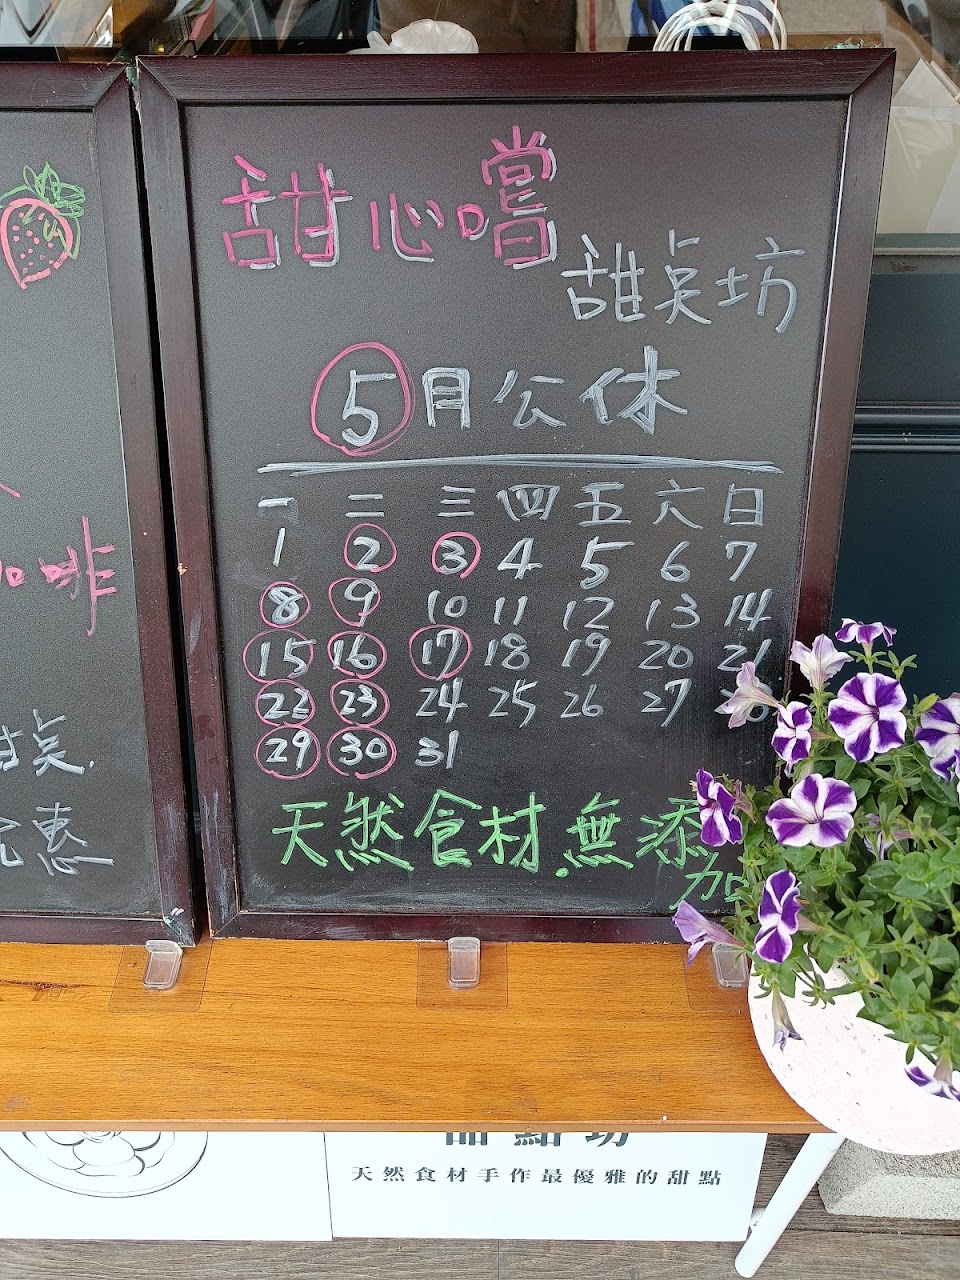 甜心嚐
甜点坊
5月公休
一 二 三 四 五 六 日
1 2 3 4 5 6 7
8 9 10 11 12 13 14
15 16 17 18 19 20 21
22 23 24 25 26 27 28
29 30 31
天然食材.無添
加
咖啡
甜点.
惠
甜點坊
天然食材手作最優雅的甜點